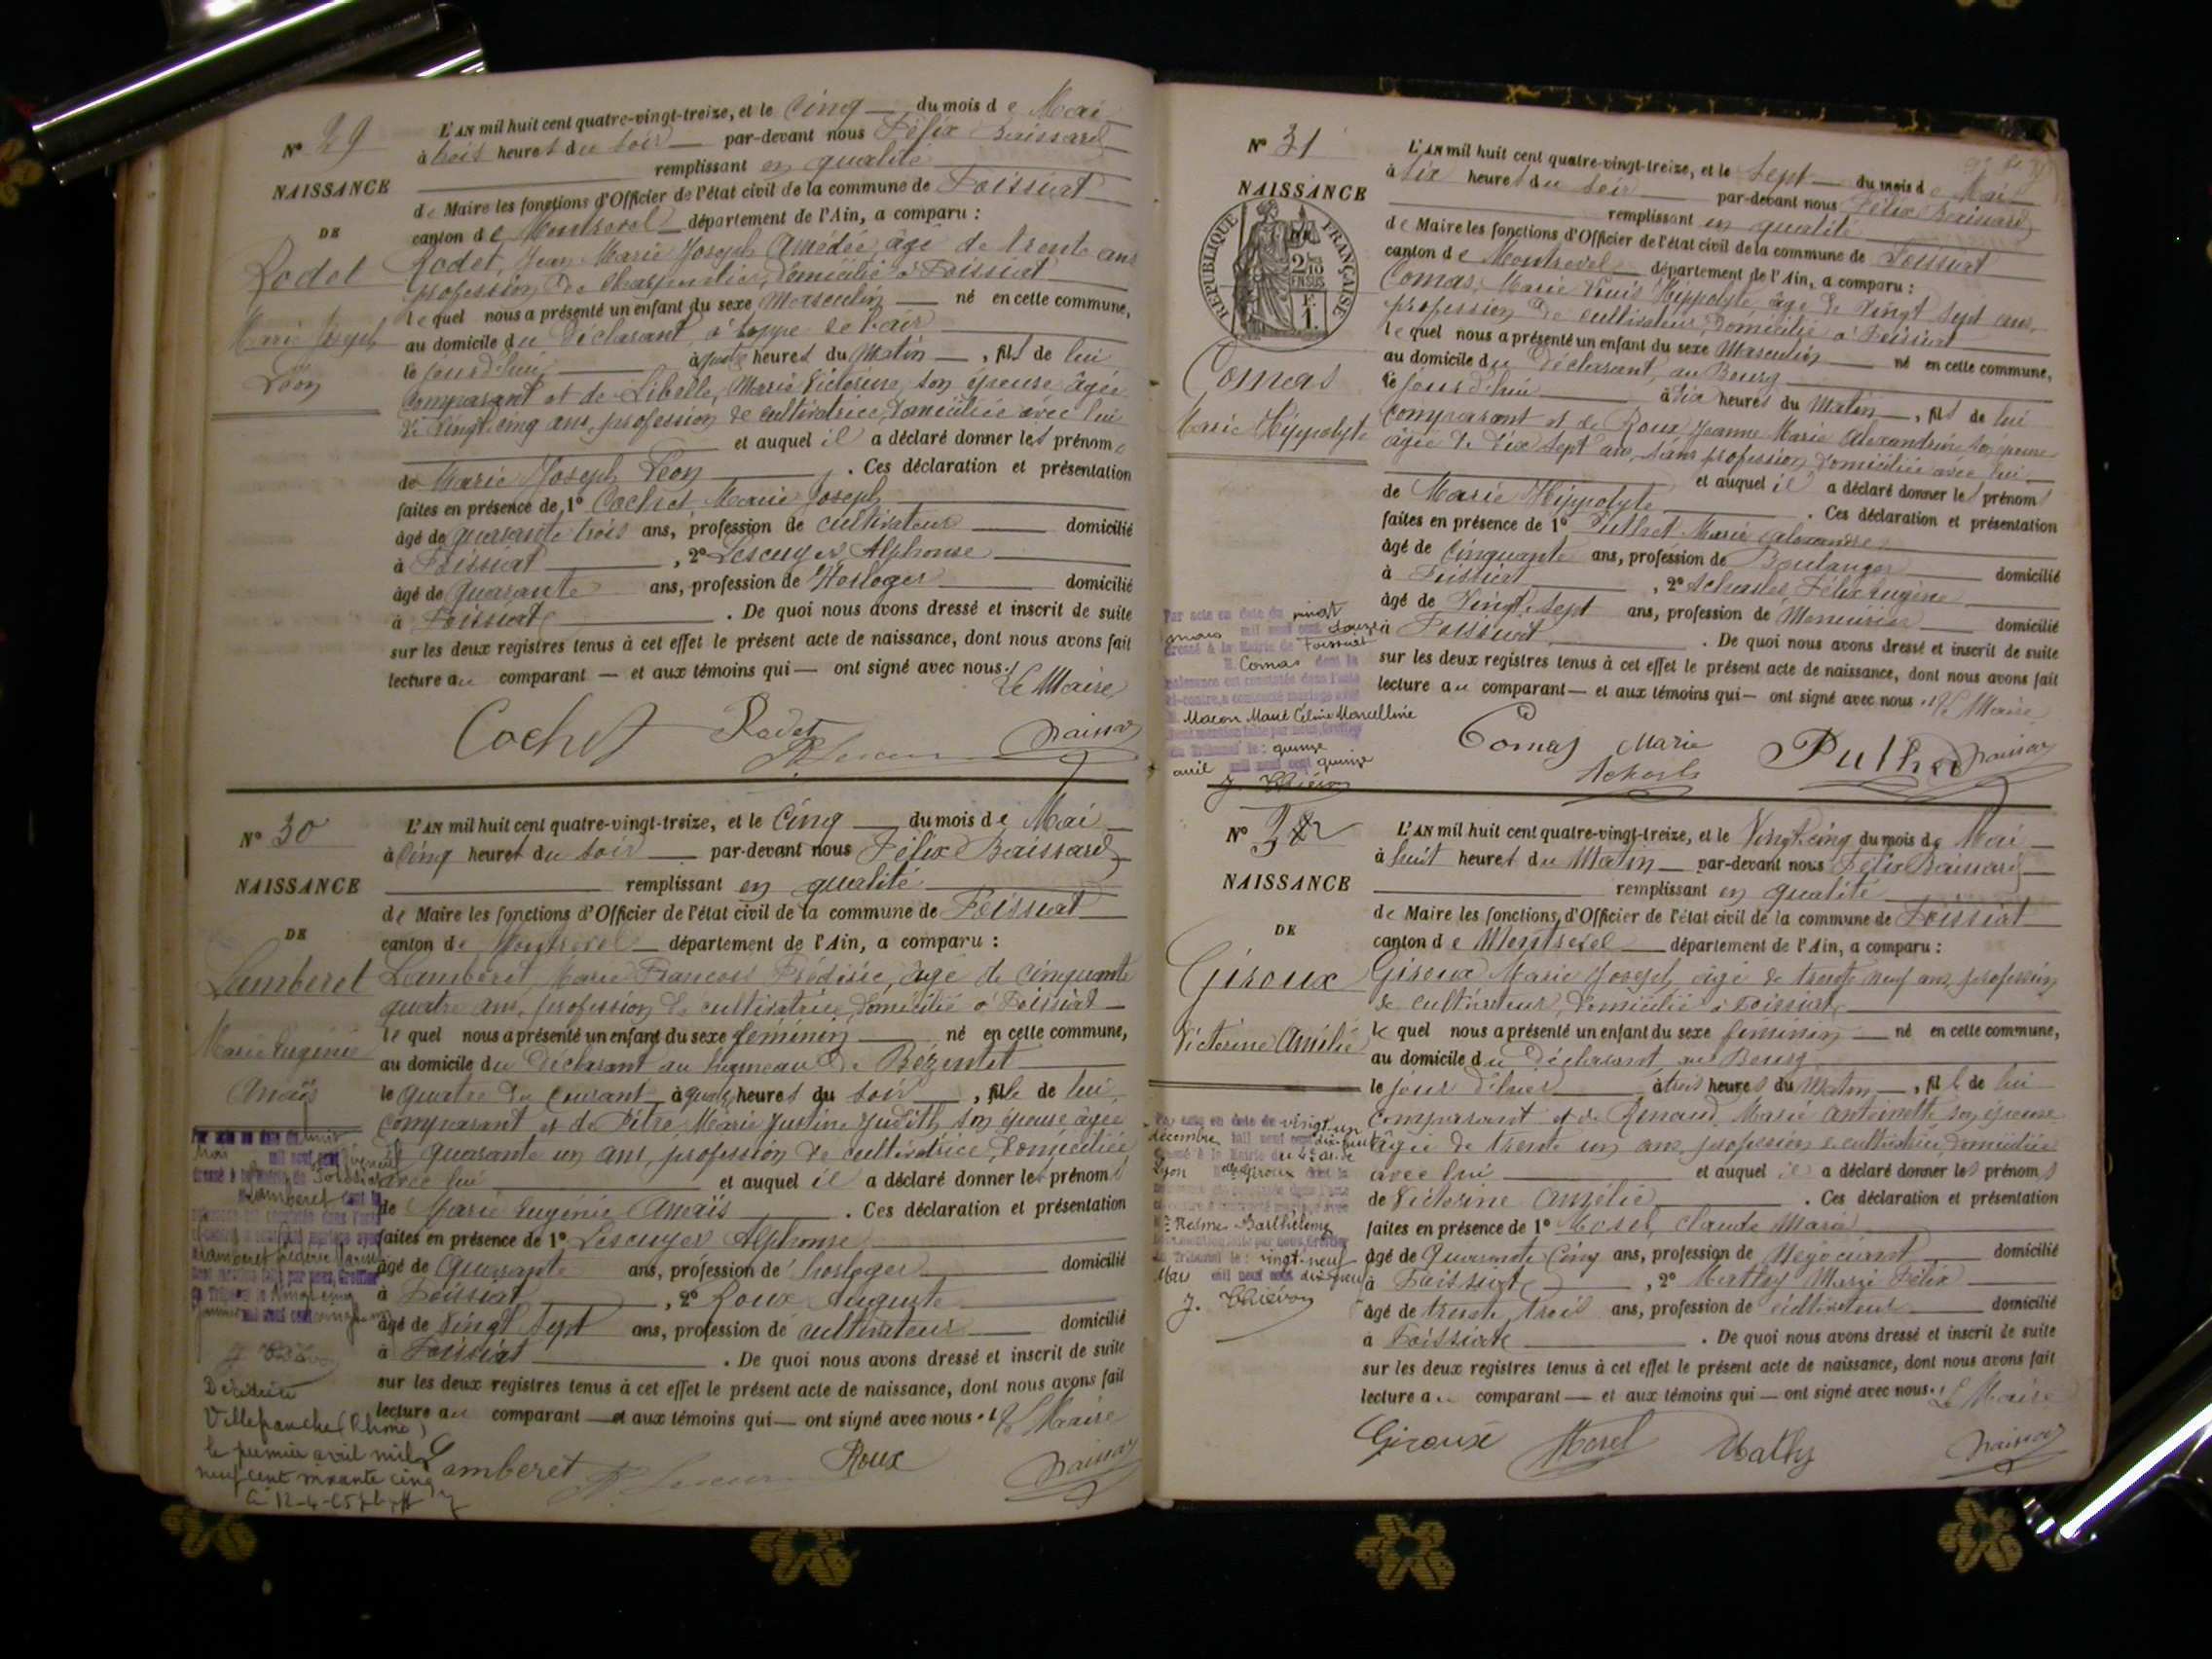 N° 29
NAISSANCE
DE
Rodet
Marie Joseph
Léon
L'AN mil huit cent quatre-vingt-treize, et le Cinq du mois de Mai
à trois heures du soir par-devant nous Félix Baissard
remplissant en qualité
de Maire les fonctions d'Officier de l'état civil de la commune de Foissiat
canton de Montrevel département de l'Ain, a comparu :
Rodet, Jean Marie Joseph Amédée, âgé de trente ans
profession de charpentier, domicilié à Foissiat
lequel nous a présenté un enfant du sexe Masculin né en cette commune,
au domicile du déclarant, à
le jourd'hui à heures du Matin, fils de lui
comparant et de Libelle, Marie Victorine, son épouse âgée
de vingt cinq ans, profession de cultivatrice, domiciliée avec lui
et auquel il a déclaré donner les prénoms
de Marie Joseph Léon. Ces déclaration et présentation
faites en présence de 1° Cochet, Marie Joseph
âgé de quarante trois ans, profession de cultivateur domicilié
à Foissiat, 2° Lescuyer, Alphonse
âgé de quarante ans, profession de Horloger domicilié
à Foissiat. De quoi nous avons dressé et inscrit de suite
sur les deux registres tenus à cet effet le présent acte de naissance, dont nous avons fait
lecture au comparant — et aux témoins qui — ont signé avec nous. Le Maire
Cochet Rodet
N° 30
NAISSANCE
DE
Lamberet
Marie Eugénie
Anaïs
L'AN mil huit cent quatre-vingt-treize, et le Cinq du mois de Mai
à Cinq heures du soir par-devant nous Félix Baissard
remplissant en qualité
de Maire les fonctions d'Officier de l'état civil de la commune de Foissiat
canton de Montrevel département de l'Ain, a comparu :
Lamberet, Marie François Frédéric, âgé de cinquante
quatre ans, profession de cultivatrice, domicilié à Foissiat
lequel nous a présenté un enfant du sexe féminin né en cette commune,
au domicile du déclarant au hameau de Bézentet
le quatre du courant à quatre heures du soir, fille de lui
comparant et de Pitre Marie Justine Judith, son épouse âgée
de quarante un ans, profession de cultivatrice, domiciliée
avec lui et auquel il a déclaré donner les prénoms
de Marie Eugénie Anaïs. Ces déclaration et présentation
faites en présence de 1° Lescuyer Alphonse
âgé de Quarante ans, profession de horloger domicilié
à Foissiat, 2° Roux Auguste
âgé de Vingt Sept ans, profession de cultivateur domicilié
à Foissiat. De quoi nous avons dressé et inscrit de suite
sur les deux registres tenus à cet effet le présent acte de naissance, dont nous avons fait
lecture au comparant — et aux témoins qui — ont signé avec nous. Le Maire
Lamberet Roux
Décédée
Villefranche (Rhône)
le premier avril mil
neuf cent soixante cinq
N° 31
NAISSANCE
RÉPUBLIQUE FRANÇAISE
2/10 EN SUS
F. 1.
Comas
Marie Hippolyte
L'AN mil huit cent quatre-vingt-treize, et le Sept du mois de Mai
à six heures du soir par-devant nous Félix Baissard
remplissant en qualité
de Maire les fonctions d'Officier de l'état civil de la commune de Foissiat
canton de Montrevel département de l'Ain, a comparu :
Comas, Marie Louis Hippolyte âgé de vingt sept ans,
profession de cultivateur, domicilié à Foissiat
lequel nous a présenté un enfant du sexe Masculin né en cette commune,
au domicile du déclarant, au Bourg
le jourd'hui à dix heures du Matin, fils de lui
comparant et de Roux Jeanne Marie Alexandrine son épouse
âgée de dix sept ans, sans profession, domiciliée avec lui
et auquel il a déclaré donner les prénoms
de Marie Hippolyte. Ces déclaration et présentation
faites en présence de 1° Puthet Marie Alexandre
âgé de cinquante ans, profession de Boulanger domicilié
à Foissiat, 2° Acharles, Félix Eugène
âgé de Vingt Sept ans, profession de Menuisier domicilié
à Foissiat. De quoi nous avons dressé et inscrit de suite
sur les deux registres tenus à cet effet le présent acte de naissance, dont nous avons fait
lecture au comparant — et aux témoins qui — ont signé avec nous. Le Maire
Comas Marie Puthet
Par acte en date du vingt
mars mil neuf cent
dressé à la Mairie de Foissiat
M. Comas dont la
naissance est constatée dans l'acte
ci-contre, a contracté mariage avec
Macon Marie Céline Marcelline
Dont mention faite par nous, Greffier
du Tribunal le : quinze
avril mil neuf cent quinze
N° 32
NAISSANCE
DE
Giroux
Victorine Amélie
L'AN mil huit cent quatre-vingt-treize, et le Vingt cinq du mois de Mai
à huit heures du Matin par-devant nous Félix Baissard
remplissant en qualité
de Maire les fonctions d'Officier de l'état civil de la commune de Foissiat
canton de Montrevel département de l'Ain, a comparu :
Giroux Marie Joseph, âgé de trente neuf ans, profession
de cultivateur, domicilié à Foissiat
lequel nous a présenté un enfant du sexe féminin né en cette commune,
au domicile du déclarant, au Bourg
le jour d'hier à trois heures du Matin, fille de lui
comparant et de Renaud, Marie Antoinette son épouse
âgée de trente un ans, profession de cultivatrice, domiciliée
avec lui et auquel il a déclaré donner les prénoms
de Victorine Amélie. Ces déclaration et présentation
faites en présence de 1° Morel, Claude Marie
âgé de Quarante Cinq ans, profession de Négociant domicilié
à Foissiat, 2° Mathy Marie Félix
âgé de trente trois ans, profession de cultivateur domicilié
à Foissiat. De quoi nous avons dressé et inscrit de suite
sur les deux registres tenus à cet effet le présent acte de naissance, dont nous avons fait
lecture au comparant — et aux témoins qui — ont signé avec nous. Le Maire
Giroux Morel Mathy